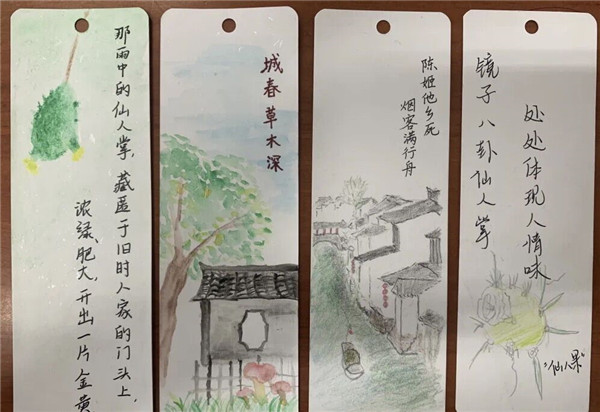 那雨中的仙人掌,藏匿于旧时人家的门头上,
浓绿、肥大,开出一片金黄
城春草木深
陈姬他乡死
烟客满行舟
镜子八卦仙人掌
处处体现人情味
“仙人果”